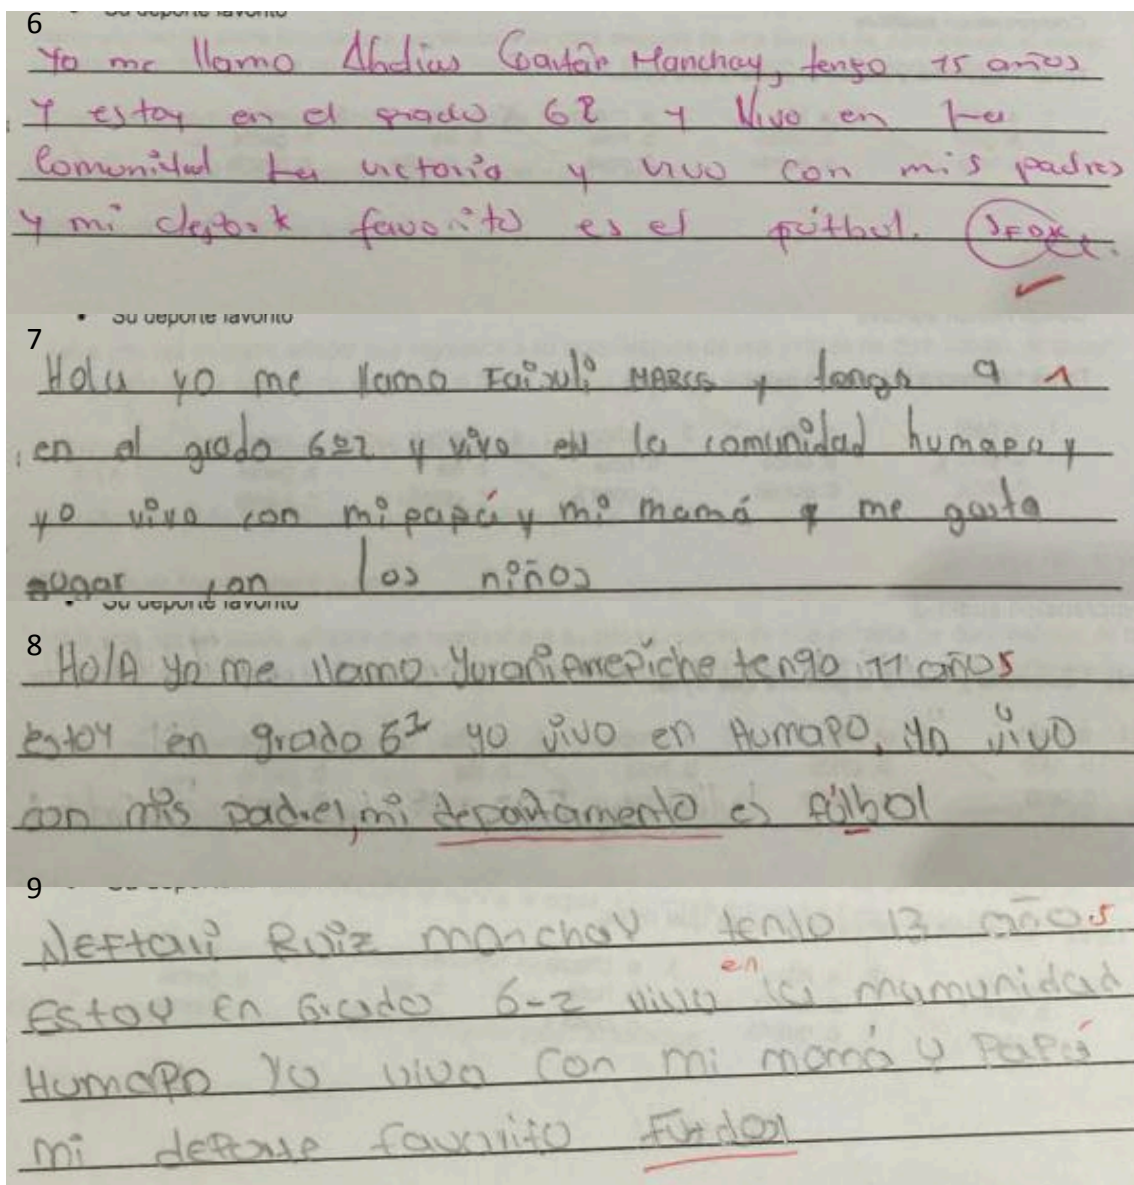 6
• Su deporte favorito
Yo me llamo Abdias Gaitán Manchay, tengo 15 años
Y estoy en el grado 62 y Vivo en La
Comunidad La victoria y vivo con mis padres
y mi favorito es el fútbol.
7
• Su deporte favorito
Hola yo me llamo y tengo 9
en el grado 6º2 y vivo en la comunidad humapo y
yo vivo con mi papá y mi mamá y me gusta
jugar con los niños
8
• Su deporte favorito
HolA yo me llamo Yurani Arrepiche tengo 11 años
estoy en grado 6² yo vivo en Humapo, yo vivo
con mis padres, mi departamento es fútbol
9
• Su deporte
Neftali Ruiz manchay tengo 13 años
Estoy En Grado 6-2 vivo en la mamunidad
Humapo Yo vivo con mi mamá y Papá
mi deporte favorito